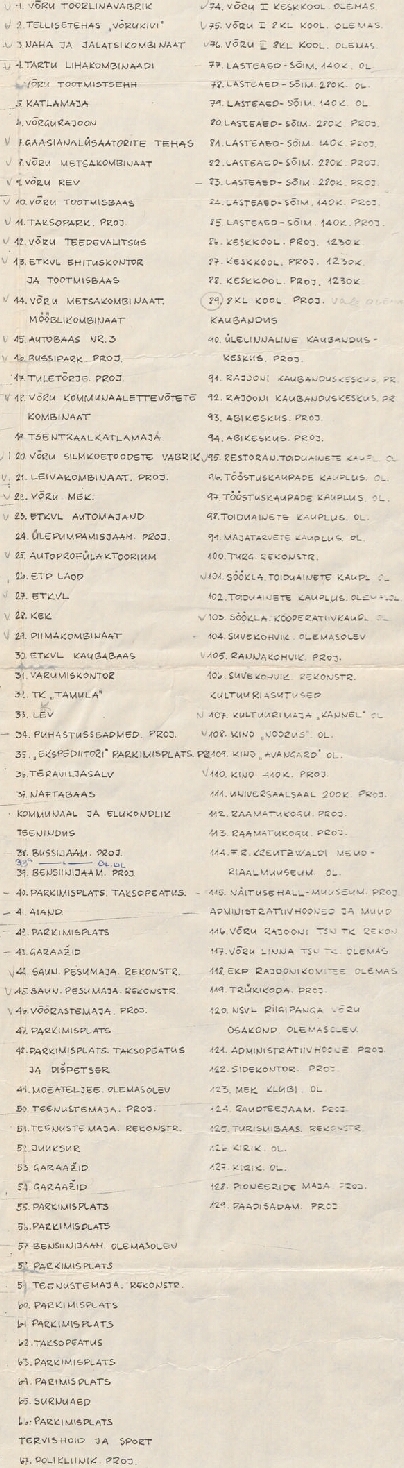 1. VÕRU TOORLINAVABRIK
2. TELLISETEHAS „VÕRUKIVI"
3 NAHA JA JALATSIKOMBINAAT
4. TARTU LIHAKOMBINAADI
VÕRU TOOTMISTSEHH
5. KATLAMAJA
6. VÕRGURAJOON
7. GAASIANALÜSAATORITE TEHAS
8. VÕRU METSAKOMBINAAT
9. VÕRU REV
10. VÕRU TOOTMISBAAS
11. TAKSOPARK. PROJ.
12. VÕRU TEEDEVALITSUS
13. ETKVL EHITUSKONTOR
JA TOOTMISBAAS
14. VÕRU METSAKOMBINAAT.
MÖÖBLIKOMBINAAT
15. AUTOBAAS NR. 3
16. BUSSIPARK. PROJ.
17. TULETÕRJE. PROJ.
18. VÕRU KOMMUNAALETTEVÕTETE
KOMBINAAT
19. TSENTRAALKATLAMAJA
20. VÕRU SILMKOETOODETE VABRIK
21. LEIVAKOMBINAAT. PROJ.
22. VÕRU MEK.
23. ETKVL AUTOMAJAND
24. ÜLEPUMPAMISJAAM. PROJ.
25. AUTOPROFÜLAKTOORIUM
26. ETP LAOD
27. ETKVL
28. KEK
29. PIIMAKOMBINAAT
30. ETKVL KAUBABAAS
31. VARUMISKONTOR
32. TK „TAMULA"
33. LEV
34. PUHASTUSSEADMED. PROJ.
35. „EKSPEDIITORI" PARKIMISPLATS. PR
36. TERAVILJASALV
37. NAFTABAAS
KOMMUNAAL JA ELUKONDLIK
TEENINDUS
38. BUSSIJAAM. PROJ.
39. BENSIINIJAAM. PROJ
40. PARKIMISPLATS. TAKSOPEATUS.
41. AIAND
42. PARKIMISPLATS
43. GARAAŽID
44. SAUN. PESUMAJA. REKONSTR.
45. SAUN. PESUMAJA. REKONSTR.
46. VÕÕRASTEMAJA. PROJ.
47. PARKIMISPLATS
48. PARKIMISPLATS. TAKSOPEATUS
JA DISPETSER
49. MOEATELJEE. OLEMASOLEV
50. TEENUSTEMAJA. PROJ.
51. TEENUSTEMAJA. REKONSTR.
52. JUUKSUR
53 GARAAŽID
54 GARAAŽID
55. PARKIMISPLATS
56. PARKIMISPLATS
57 BENSIINIJAAM OLEMASOLEV
58 PARKIMISPLATS
59 TEENUSTEMAJA. REKONSTR.
60. PARKIMISPLATS
61 PARKIMISPLATS
62. TAKSOPEATUS
63. PARKIMISPLATS
64. PARIMISPLATS
65. SURNUAED
66. PARKIMISPLATS
TERVISHOID JA SPORT
67. POLIKLIINIK. PROJ.
74. VÕRU I KESKKOOL OLEMAS
75. VÕRU I 8KL KOOL. OLEMAS.
76. VÕRU II 8KL. KOOL. OLEMAS.
77. LASTEAED-SÕIM. 140K. OL
78. LASTEAED-SÕIM. 280K. OL.
79. LASTEAED-SÕIM. 140K. OL
80. LASTEAED-SÕIM. 280K. PROJ.
81. LASTEAED-SÕIM. 140K. PROJ.
82. LASTEAED-SÕIM. 280K. PROJ.
83. LASTEAED-SÕIM. 280K. PROJ.
84. LASTEAED-SÕIM. 140K. PROJ.
85 LASTEAED-SÕIM. 140K. PROJ.
86. KESKKOOL. PROJ. 1230K
87. KESKKOOL. PROJ. 1230K.
88. KESKKOOL. PROJ. 1230K
89. 8KL KOOL. PROJ.
KAUBANDUS
90. ÜLELINNALINE KAUBANDUS-
KESKUS. PROJ.
91. RAJOONI KAUBANDUSKESKUS. PR
92. RAJOONI KAUBANDUSKESKUS. PR
93. ABIKESKUS. PROJ
94. ABIKESKUS. PROJ.
95. RESTORAN. TOIDUAINETE KAUPL. OL
96. TÖÖSTUSKAUPADE KAUPLUS. OL
97. TÖÖSTUSKAUPADE KAUPLUS. OL.
98. TOIDUAINETE KAUPLUS. OL.
99. MAJATARVETE KAUPLUS. OL.
100. TURG REKONSTR.
101. SÖÖKLA. TOIDUAINETE KAUPL OL
102. TOIDUAINETE KAUPLUS.
103. SÖÖKLA. KOOPERATIIVKAUPL. OL
104. SUVEKOHVIK. OLEMASOLEV
105. RANNAKOHVIK. PROJ.
106. SUVEKOHVIK REKONSTR.
KULTUURIASUTUSED
107. KULTUURIMAJA „KANNEL" OL
108. KINO „NOORUS". OL.
109. KINO „AVANGARD" OL.
110. KINO 410K. PROJ.
111. UNIVERSAALSAAL 200K. PROJ.
112. RAAMATUKOGU. PROJ.
113. RAAMATUKOGU. PROJ
114. F.R. KREUTZWALDI MEMO-
RIAALMUUSEUM. OL
115. NÄITUSEHALL-MUUSEUM. PROJ
ADMINISTRATIIVHOONED JA MUUD
116. VÕRU RAJOONI TSN TK REKON
117. VÕRU LINNA TSN TK. OLEMAS
118. EKP RAJOONIKOMITEE OLEMAS
119. TRÜKIKODA. PROJ.
120. NSVL RIIGIPANGA VÕRU
OSAKOND OLEMASOLEV.
121. ADMINISTRATIIVHOONE PROJ
122. SIDEKONTOR. PROJ.
123. MEK KLUBI. OL
124. RAUDTEEJAAM. PROJ.
125. TURISMIBAAS. REKONSTR
126. KIRIK. OL.
127. KIRIK. OL.
128. PIONEERIDE MAJA. PROJ.
129. PAADISADAM. PROJ